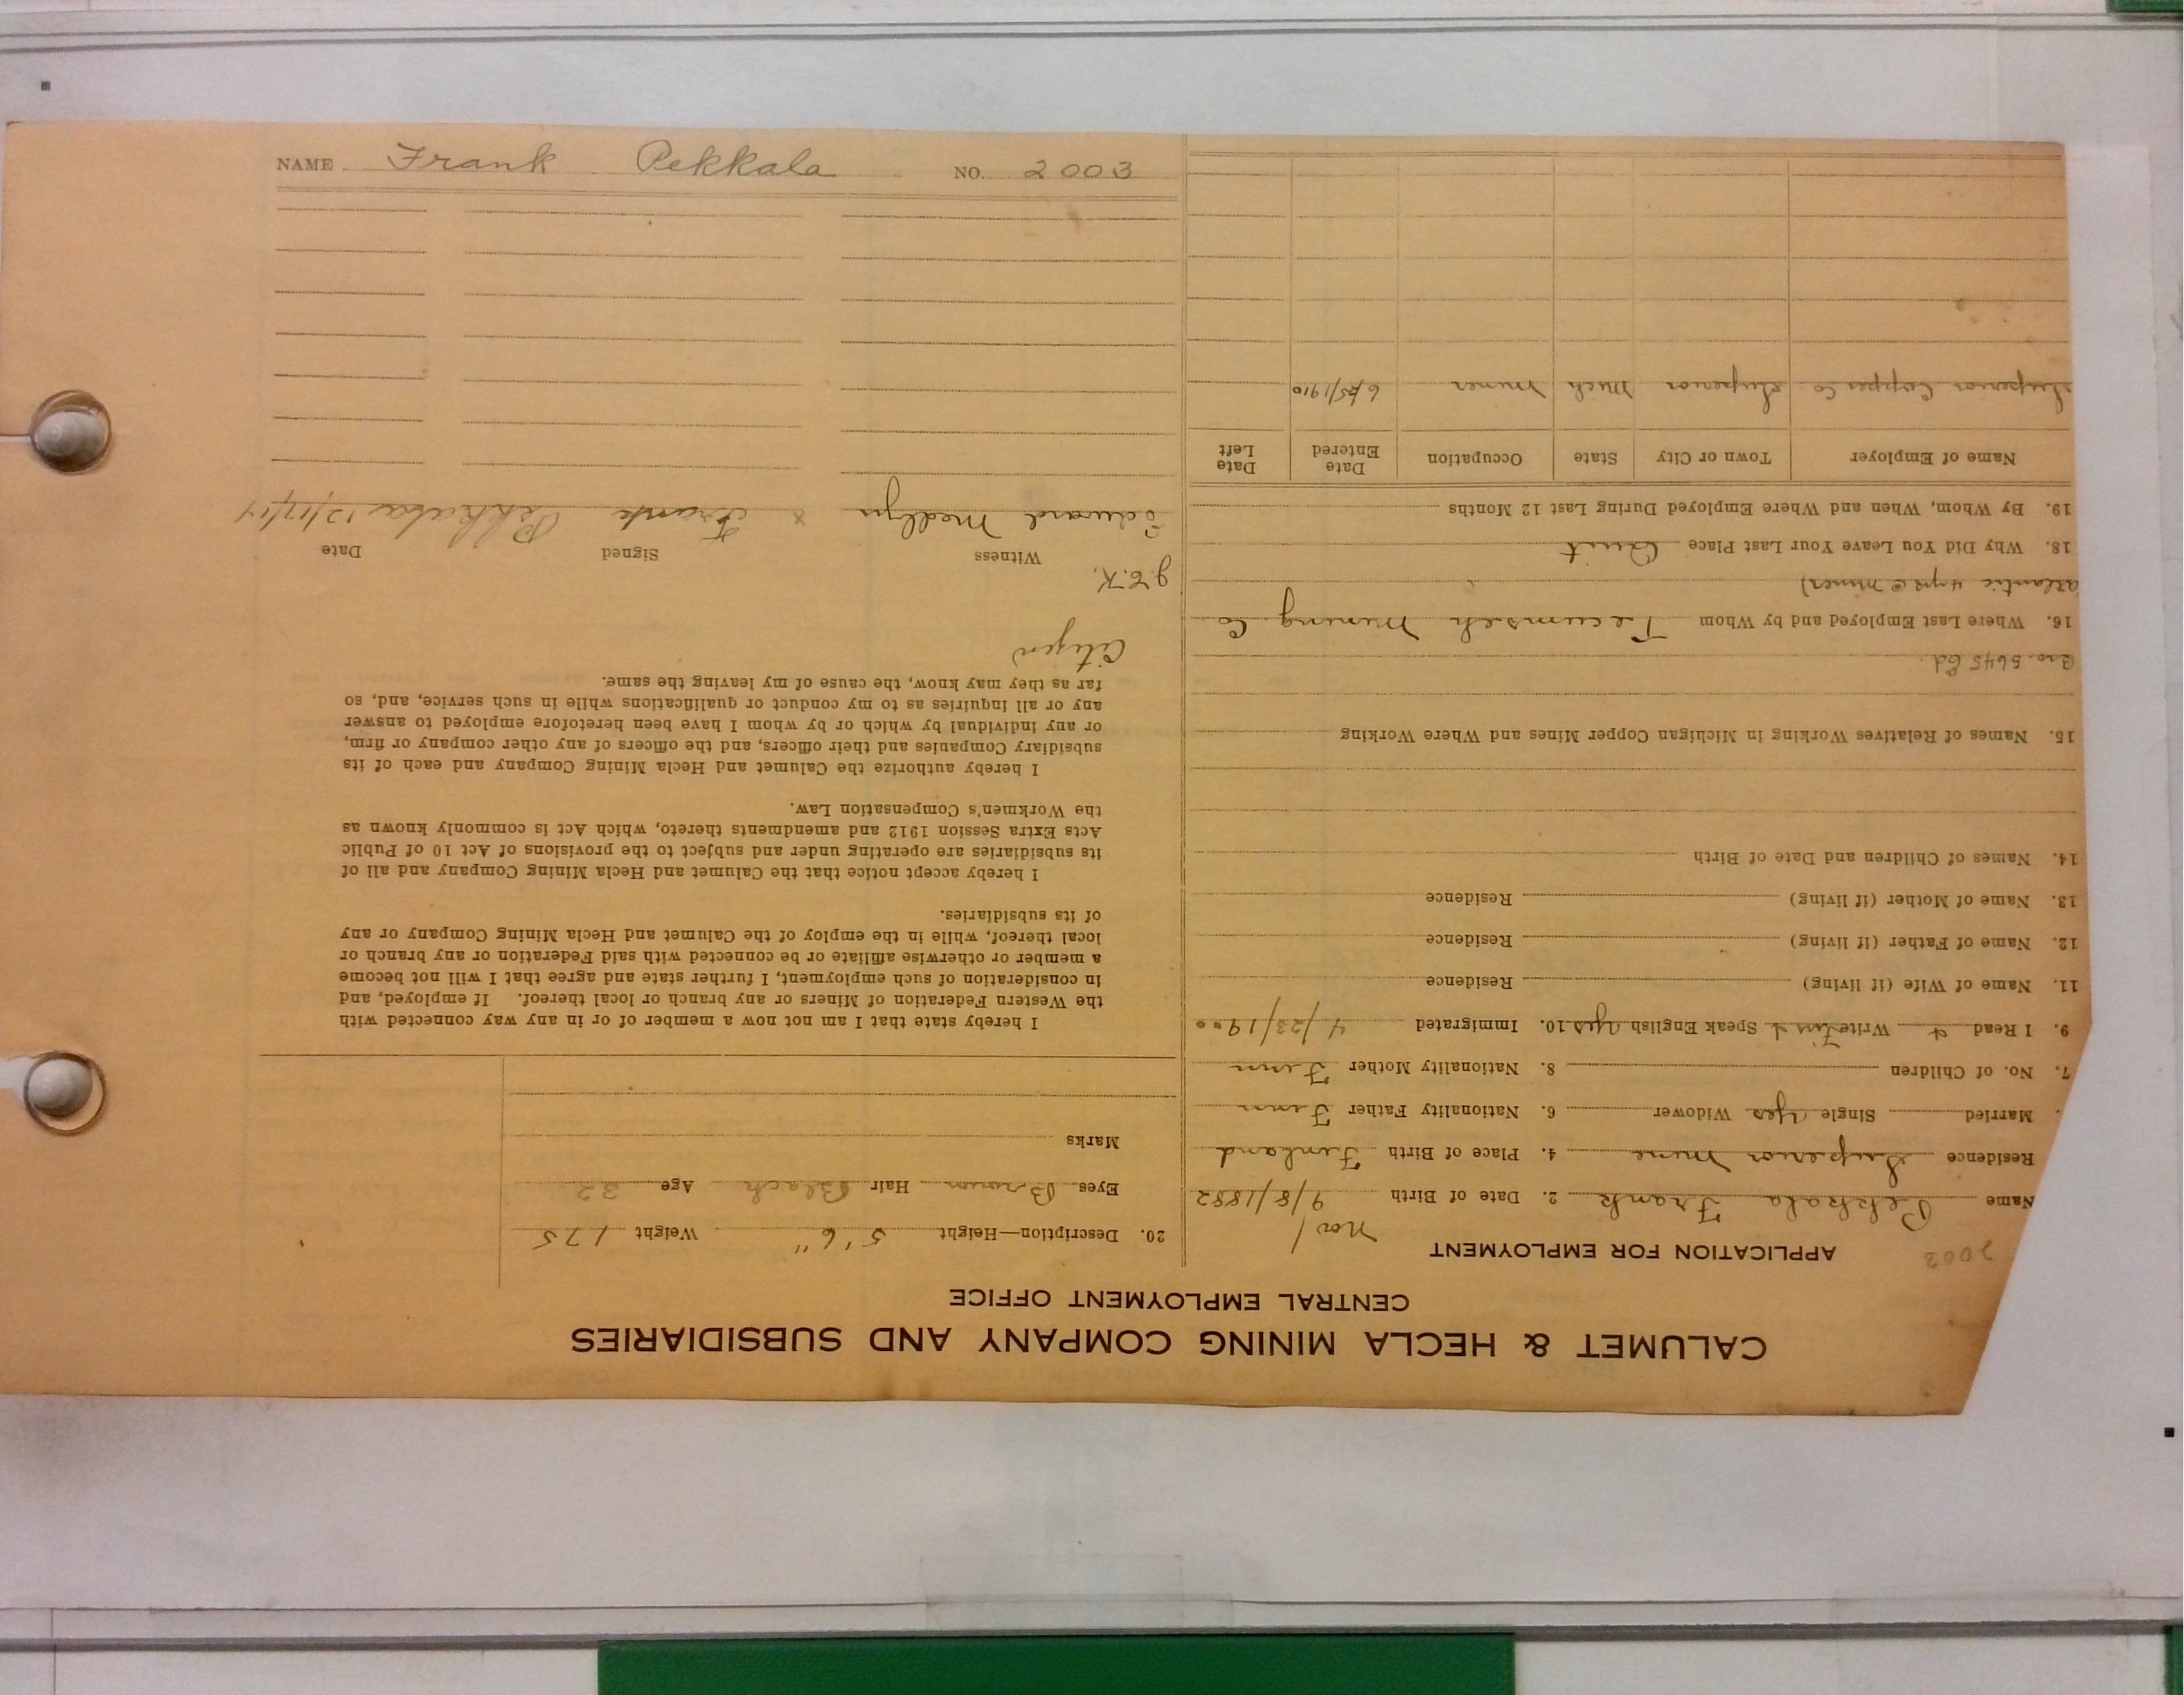 NAME Frank Pekkala NO. 2003
CALUMET & HECLA MINING COMPANY AND SUBSIDIARIES
CENTRAL EMPLOYMENT OFFICE
2003 APPLICATION FOR EMPLOYMENT
Nov
Name Pekkala Frank 2. Date of Birth 9/8/1882
Residence Superior Mine 4. Place of Birth Finland
Married Single Yes Widower 6. Nationality Father Finn
7. No. of Children 8. Nationality Mother Finn
9. I Read & Write Finn & Speak English Yes 10. Immigrated 4/23/1900
11. Name of Wife (if living) Residence
12. Name of Father (if living) Residence
13. Name of Mother (if living) Residence
14. Names of Children and Date of Birth
15. Names of Relatives Working in Michigan Copper Mines and Where Working
Bro. 5645 Ed.
16. Where Last Employed and by Whom Tecumseh Mining Co
Atlantic 4 yrs (Miner)
18. Why Did You Leave Your Last Place Quit
19. By Whom, When and Where Employed During Last 12 Months
Name of Employer Town or City State Occupation Date Entered Date Left
Superior Copper Co. Superior Mich Miner 6/25/1910
20. Description—Height 5' 6" Weight 175
Eyes Brown Hair Black Age 32
Marks
I hereby state that I am not now a member of or in any way connected with
the Western Federation of Miners or any branch or local thereof. If employed, and
in consideration of such employment, I further state and agree that I will not become
a member or otherwise affiliate or be connected with said Federation or any branch or
local thereof, while in the employ of the Calumet and Hecla Mining Company or any
of its subsidiaries.
I hereby accept notice that the Calumet and Hecla Mining Company and all of
its subsidiaries are operating under and subject to the provisions of Act 10 of Public
Acts Extra Session 1912 and amendments thereto, which Act is commonly known as
the Workmen's Compensation Law.
I hereby authorize the Calumet and Hecla Mining Company and each of its
subsidiary Companies and their officers, and the officers of any other company or firm,
or any individual by which or by whom I have been heretofore employed to answer
any or all inquiries as to my conduct or qualifications while in such service, and, so
far as they may know, the cause of my leaving the same.
Citizen
J.E.K.
Witness Signed Date
Edward Medlyn x Frank Pekkala 12/17/14